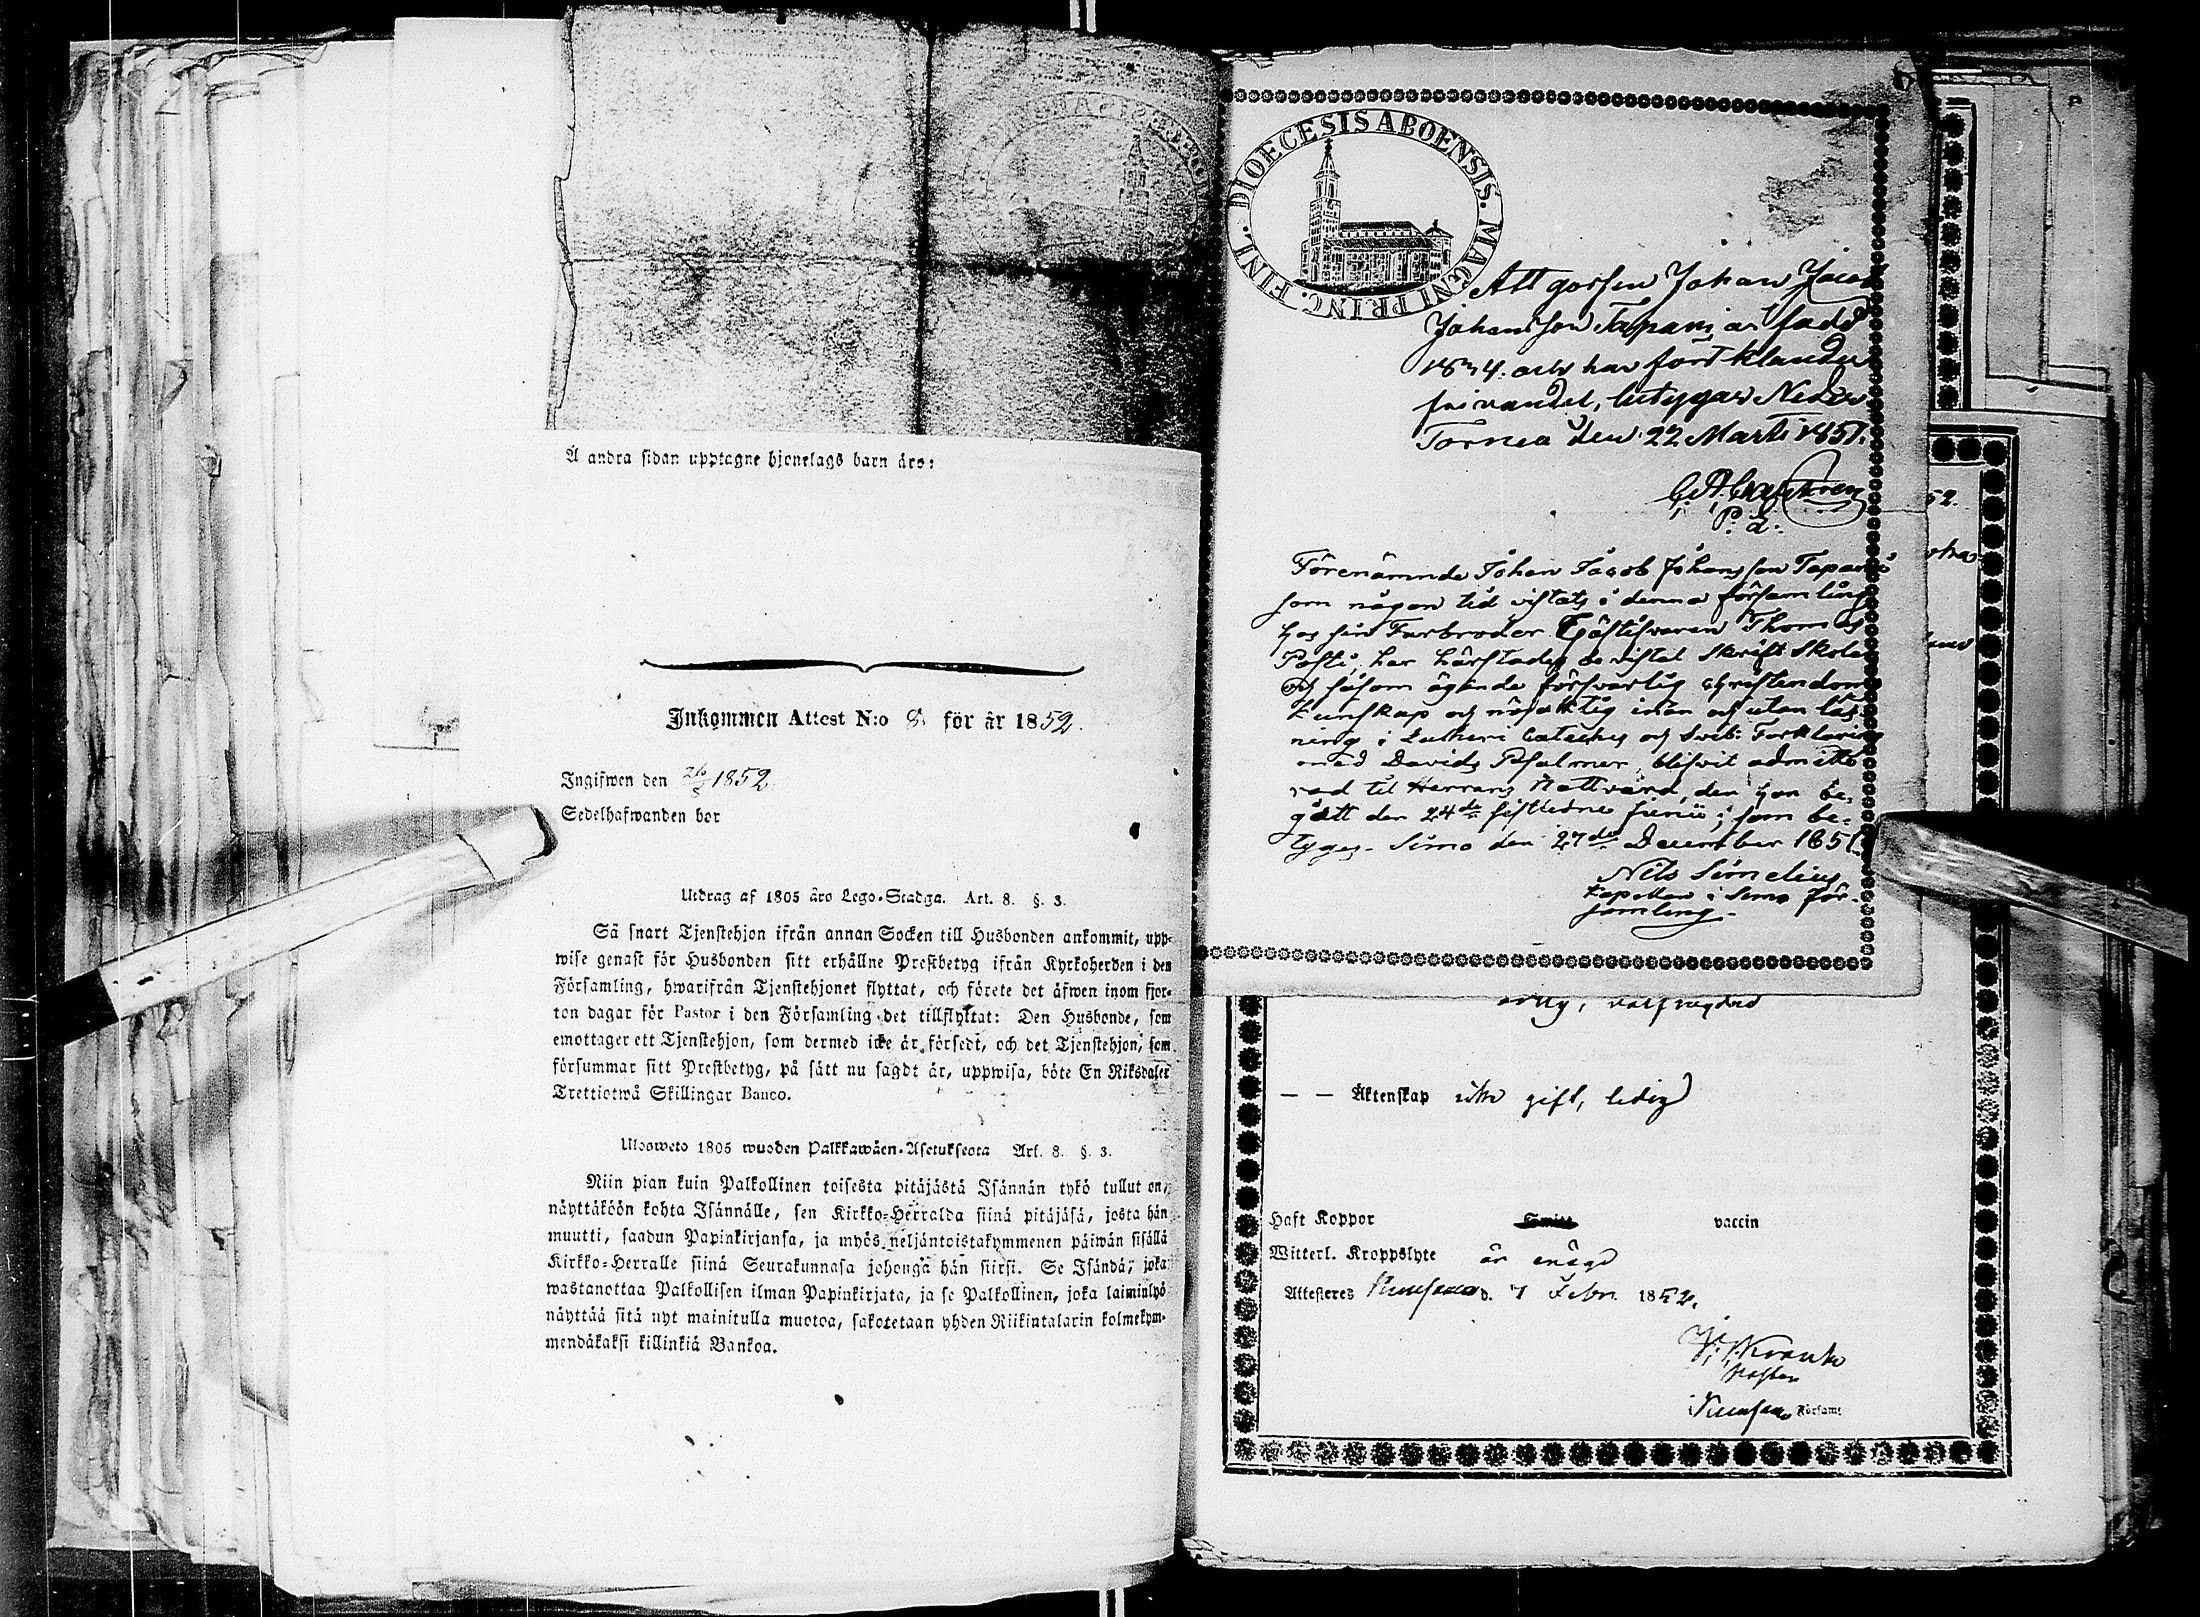 Å andra sidan upptagne hjonelags barn äro:
Inkommen Attest N:o 8. för år 1852.
Ingifwen den 26/3 1852.
Sedelhafwanden bor
Utdrag af 1805 åro Lego-Stadga. Art. 8. §. 3.
Så snart Tjenstehjon ifrån annan Socken till Husbonden ankommit, upp-
wise genast för Husbonden sitt erhållne Prestbetyg ifrån Kyrkoherden i den
Församling, hwarifrån Tjenstehjonet flyttat, och förete det äfwen inom fjor-
ton dagar för Pastor i den Församling det tillflyttat: Den Husbonde, som
emottager ett Tjenstehjon, som dermed icke är försedt, och det Tjenstehjon, som
försummar sitt Prestbetyg, på sätt nu sagdt är, uppwisa, böte En Riksdaler
Trettiotwå Skillingar Banco.
Ulosweto 1805 wuoden Palkkawäen-Asetuksesta Art. 8. §. 3.
Niin pian kuin Palkollinen toisesta pitäjästä Isännän tykö tullut on,
näyttäköön kohta Isännälle, sen Kirkko-Herralda siinä pitäjäsä, josta hän
muutti, saadun Papinkirjansa, ja myös neljäntoistakymmenen päiwän sisällä
Kirkko-Herralle siinä Seurakunnasa johonga hän siirsi. Se Isändä, joka
wastanottaa Palkollisen ilman Papinkirjata, ja se Palkollinen, joka laiminlyö
näyttää sitä nyt mainitulla muotoa, sakotetaan yhden Riikintalarin kolmekym-
mendäkaksi killinkiä Bankoa.
DIOECESIS ABOENSIS. MAGNI PRINC. FINL.
Att gossen Johan Jacob
Johansson Tapani är född
1834. och har fört klander
fri vandel, betygar Neder
Torneå den 22 Marti 1851.
P. L.
Förenämnde Johan Jacob Johansson Tapani
som någon tid vistats i denna församling
hos sin Farbroder Gästgivaren Thomas
Posti, har härstädes bevistat Skrift Skolan
och såsom ägande försvarlig christendoms
kunskap och nöjaktig innan och utan läs-
ning i Lutheri Cateches och Sveb: Förklaring
med Davids Psalmer, blifvit admitte
rad til Herrans Nattvard, den han be-
gått den 24de sistledne Junii; som be-
tyges. Simo den 27de December 1851.
Nils Simelius
Kapellan i Simo För-
samling.
52.
— — Äktenskap icke gift, ledig
Haft Koppor vaccin
Witterl. Kroppslyte är enögd
Attesteres d. 7 Febr. 1852.
Pastor
Församl